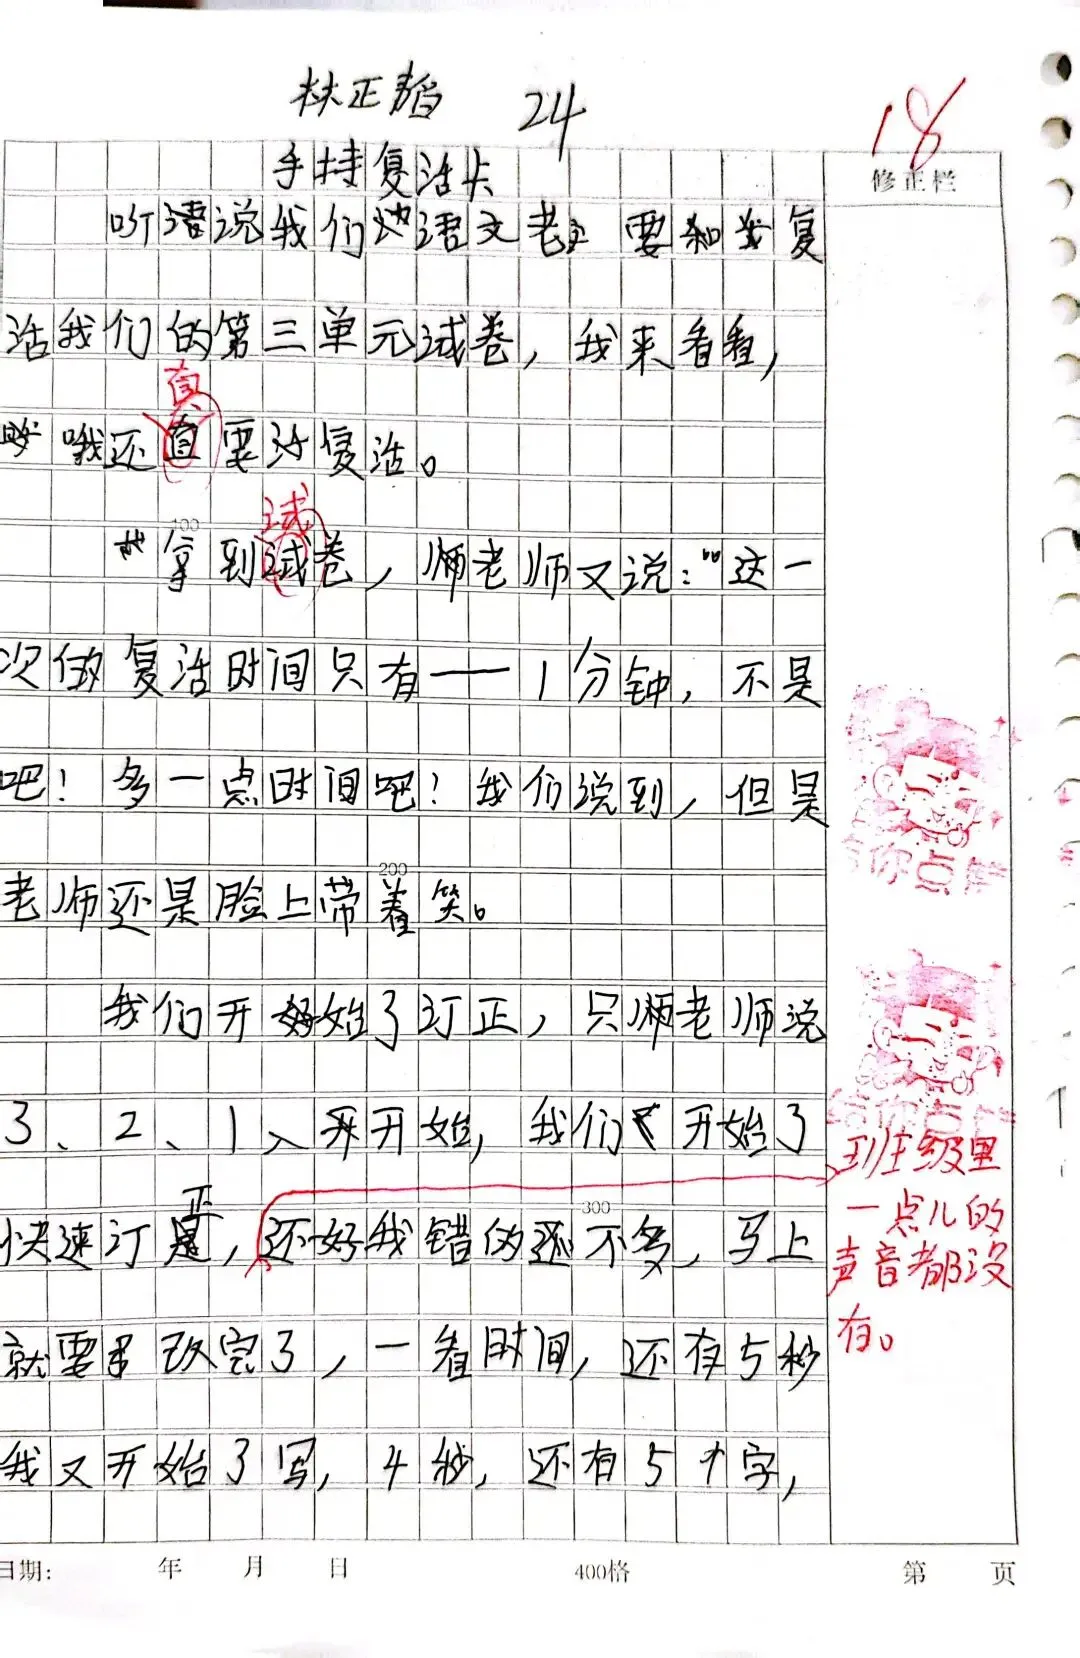 林正韬 24
18
手持复活卡
修正栏
听语说我们语文老 要和复
活我们的第三单元试卷，我来看看，
哦还直要订复活。
真
100
试
拿到试卷，老师又说：“这一
次的复活时间只有——1分钟，不是
吧！多一点时间吧！我们说到，但是
200
老师还是脸上带着笑。
给你点赞
我们开始了订正，只老师说
3、2、1、开开始，我们开始了
给你点赞
正
300
快速订，还好我错的还不多，马上
就要改完了，一看时间，还有5秒
我又开始了写，4秒，还有5个字，
班级里
一点儿的
声音都没
有。
日期： 年 月 日 400格 第 页